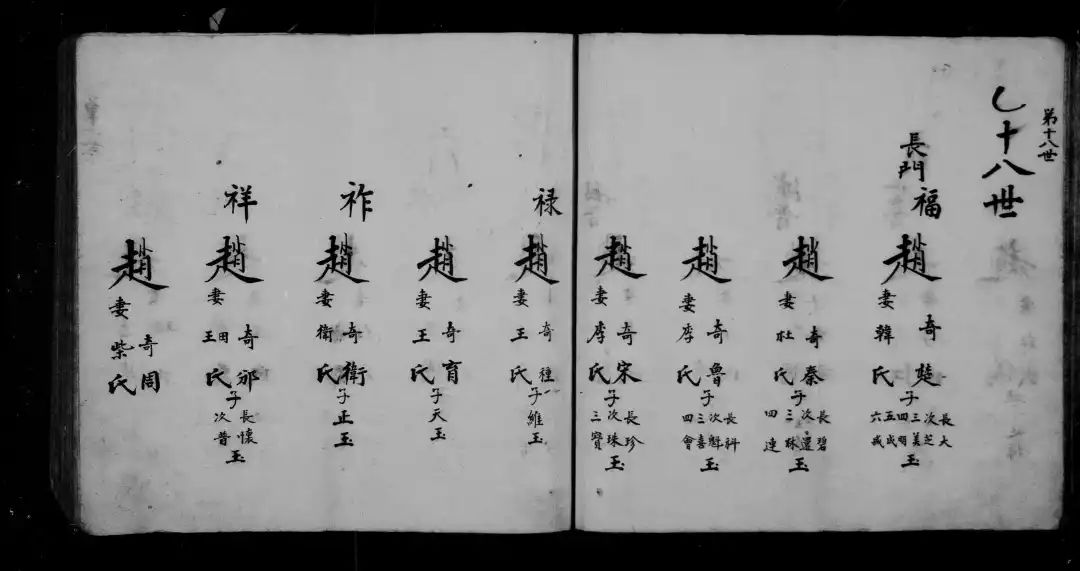 第十八世
乚十八世
長門
福
趙奇楚
妻韓氏
子長大次芝三美四明五成六戒玉
趙奇秦
妻杜氏
子長碧次還三秌四連玉
趙奇魯
妻李氏
子長科次魁三喜四會玉
趙奇宋
妻李氏
子長珍次珠三寶玉
禄
趙奇種
妻王氏
子維玉
趙奇育
妻王氏
子天玉
祚
趙奇衛
妻衛氏
子正玉
祥
趙奇邠
妻田王氏
子長懷次普玉
趙奇周
妻柴氏